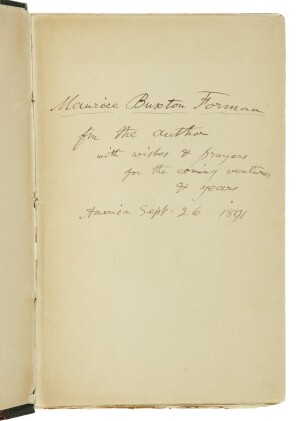 Maurice Buxton Forman
fm the author
with wishes & prayers
for the coming ventures
& years
America Sept: 26 1891